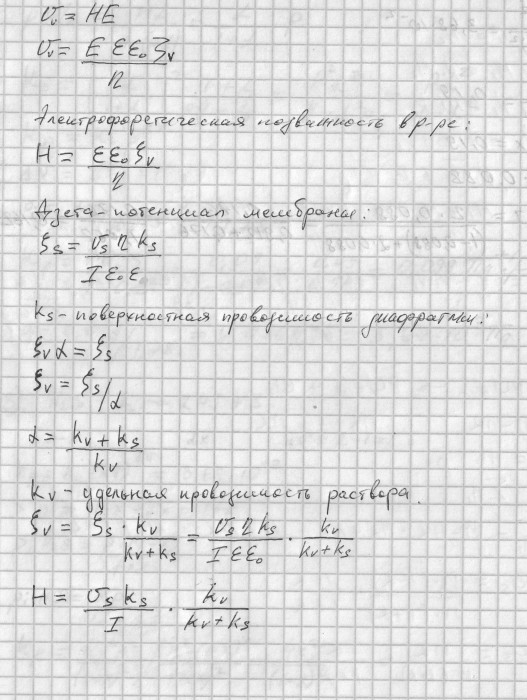 υᵥ = HE
υᵥ = E εε₀ ξᵥ / η
Электрофоретическая подвижность в р-ре:
H = εε₀ξᵥ / η
Дзета-потенциал мембраны:
ξₛ = υₛ η kₛ / I ε₀ ε
kₛ - поверхностная проводимость диафрагмы:
ξᵥ α = ξₛ
ξᵥ = ξₛ/α
α = kᵥ + kₛ / kᵥ
kᵥ - удельная проводимость раствора.
ξᵥ = ξₛ · kᵥ / kᵥ + kₛ = υₛ η kₛ / I εε₀ · kᵥ / kᵥ + kₛ
H = υₛ kₛ / I · kᵥ / kᵥ + kₛ